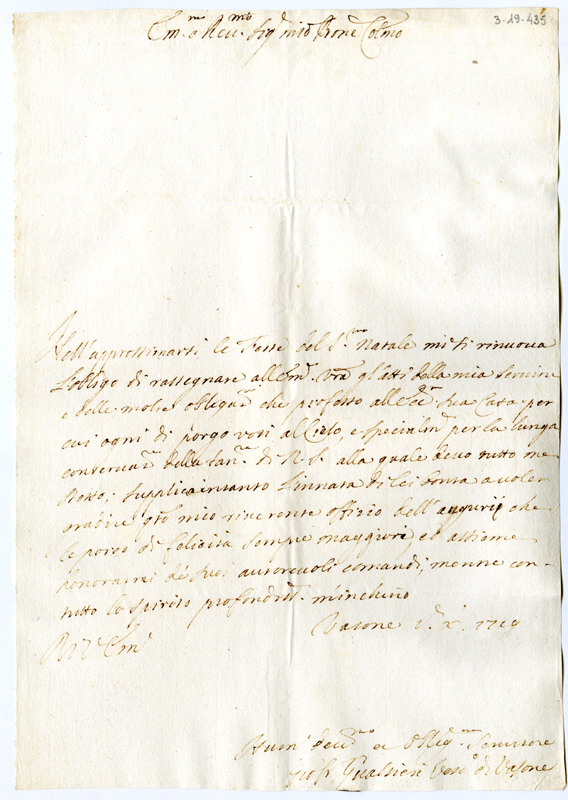 3-19-435
Em.mo e Rev.mo Sig.r mio Prone Colmo
Nell'appressimarsi le Feste del S.mo Natale mi si rinuova
l'obligo di rassegnare all'Em.a Vra gl'atti della mia Servitù
e delle molte obligaz.ni che professo all'Ecc.ma Sua Casa, per
cui ogni dì porgo voti al Cielo, e specialm.te per la lunga
conservaz.ne della San.tà di N. S. alla quale devo tutto me
stesso; supplico intanto l'innata di lei bontà a voler
gradire qto mio riverente offizio dell'augurij che
le porgo di felicità sempre maggiori, ed assieme
honorarmi de suoi autorevoli comandi, mentre con-
tutto lo spirito profondam.te m'inchino
Vasone X. 1719
Em.a
Hum.o Dev.mo et Oblig.mo Servitore
Gualtieri Vesc.o di Vasone